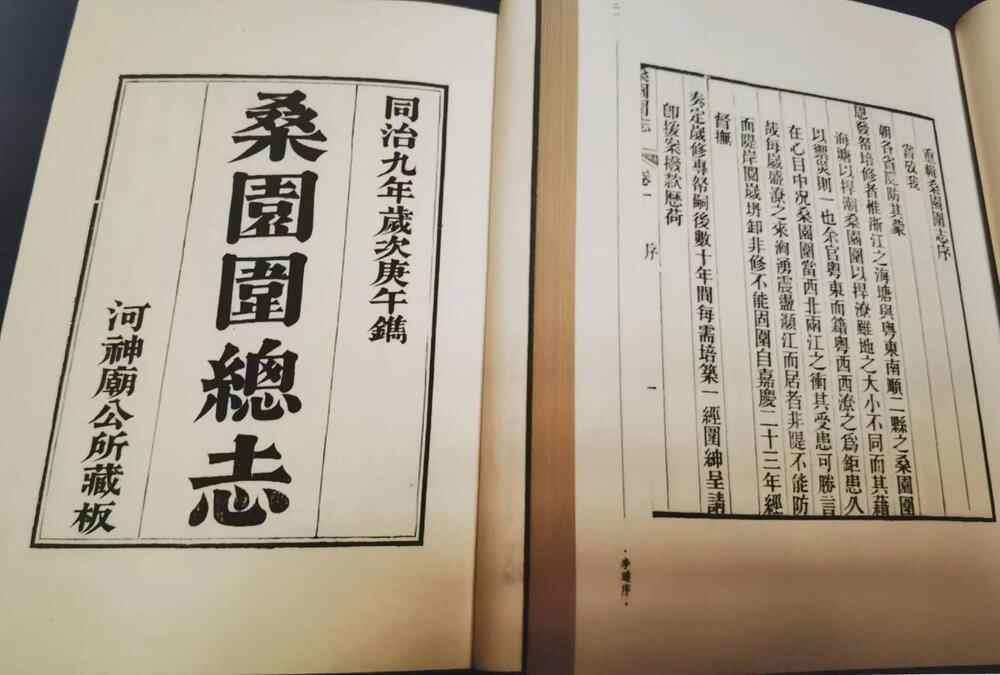 同治九年歲次庚午鐫
桑園圍總志
河神廟公所藏板
重輯桑園圍志序
嘗攷我
朝各省隄防其蒙
恩發帑培修者惟浙江之海塘與粵東南順二縣之桑園圍
海塘以捍潮桑園圍以捍潦雖地之大小不同而其藉
以禦災則一也余官粵東而籍粵西西潦之為鉅患久
在心目中況桑園圍當西北兩江之衝其受患可勝言
哉每歲盛潦之來洶湧震盪瀕江而居者非隄不能防
而隄岸閱歲坍卸非修不能固圍自嘉慶二十三年經
督撫
奏定歲修專帑嗣後數十年間每需培築一經圍紳呈請
即援案撥款歷荷
桑園圍志 卷一 序 一
二